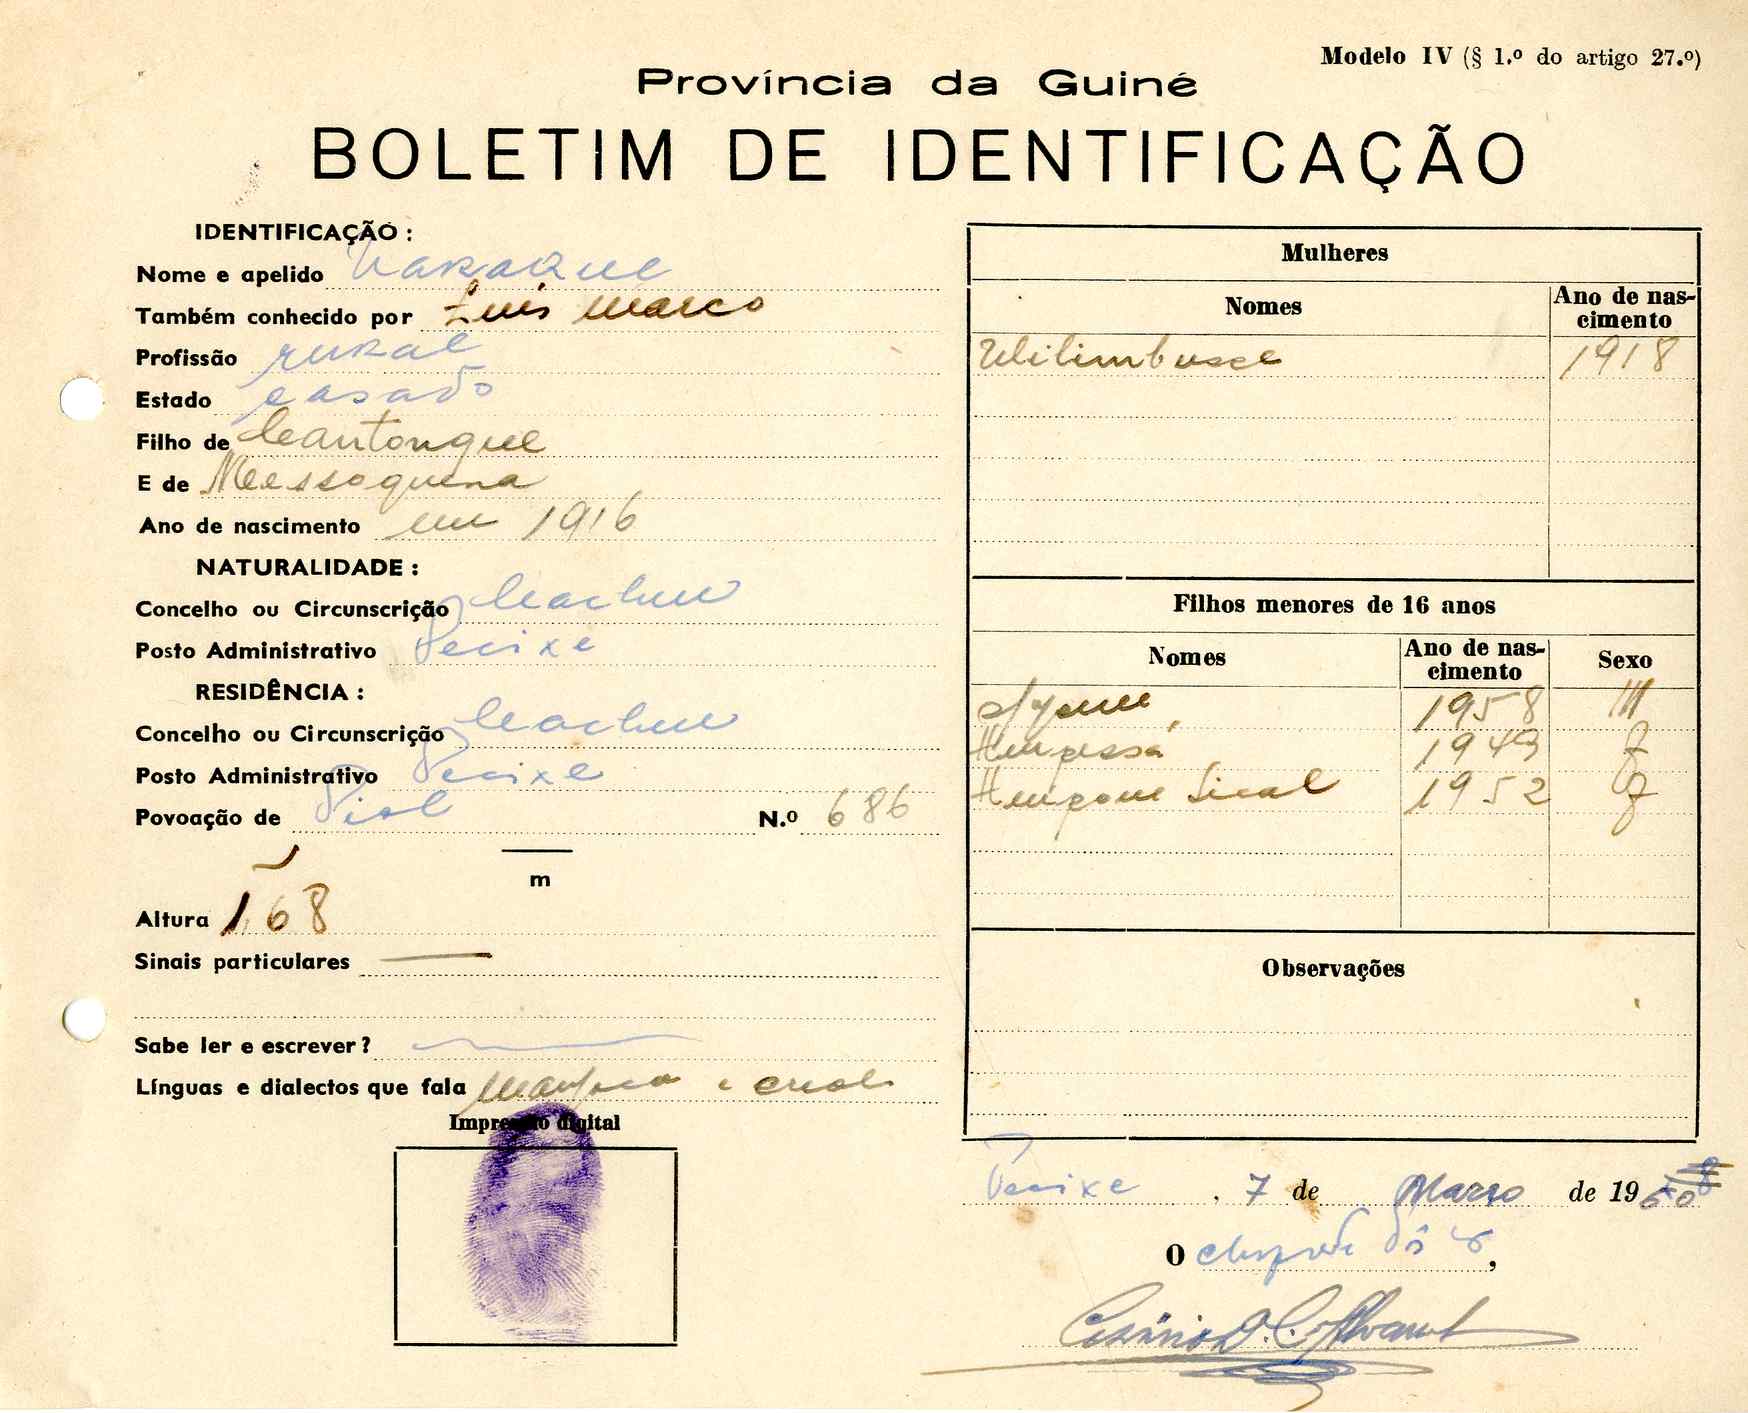 Modelo IV (§ 1.º do artigo 27.º)
Província da Guiné
BOLETIM DE IDENTIFICAÇÃO
IDENTIFICAÇÃO :
Nome e apelido
Também conhecido por Luis Marco
Profissão rural
Estado casado
Filho de Cantongue
E de Messoquena
Ano de nascimento em 1916
NATURALIDADE :
Concelho ou Circunscrição Cacheu
Posto Administrativo Pecixe
RESIDÊNCIA :
Concelho ou Circunscrição Cacheu
Posto Administrativo Pecixe
Povoação de N.º 686
m
Altura 1,68
Sinais particulares —
Sabe ler e escrever ?
Línguas e dialectos que fala
Impressão digital
Mulheres
Nomes
Ano de nascimento
1918
Filhos menores de 16 anos
Nomes
Ano de nascimento
Sexo
1958 M
1949 F
1952 F
Observações
Pecixe, 7 de Março de 1960
O